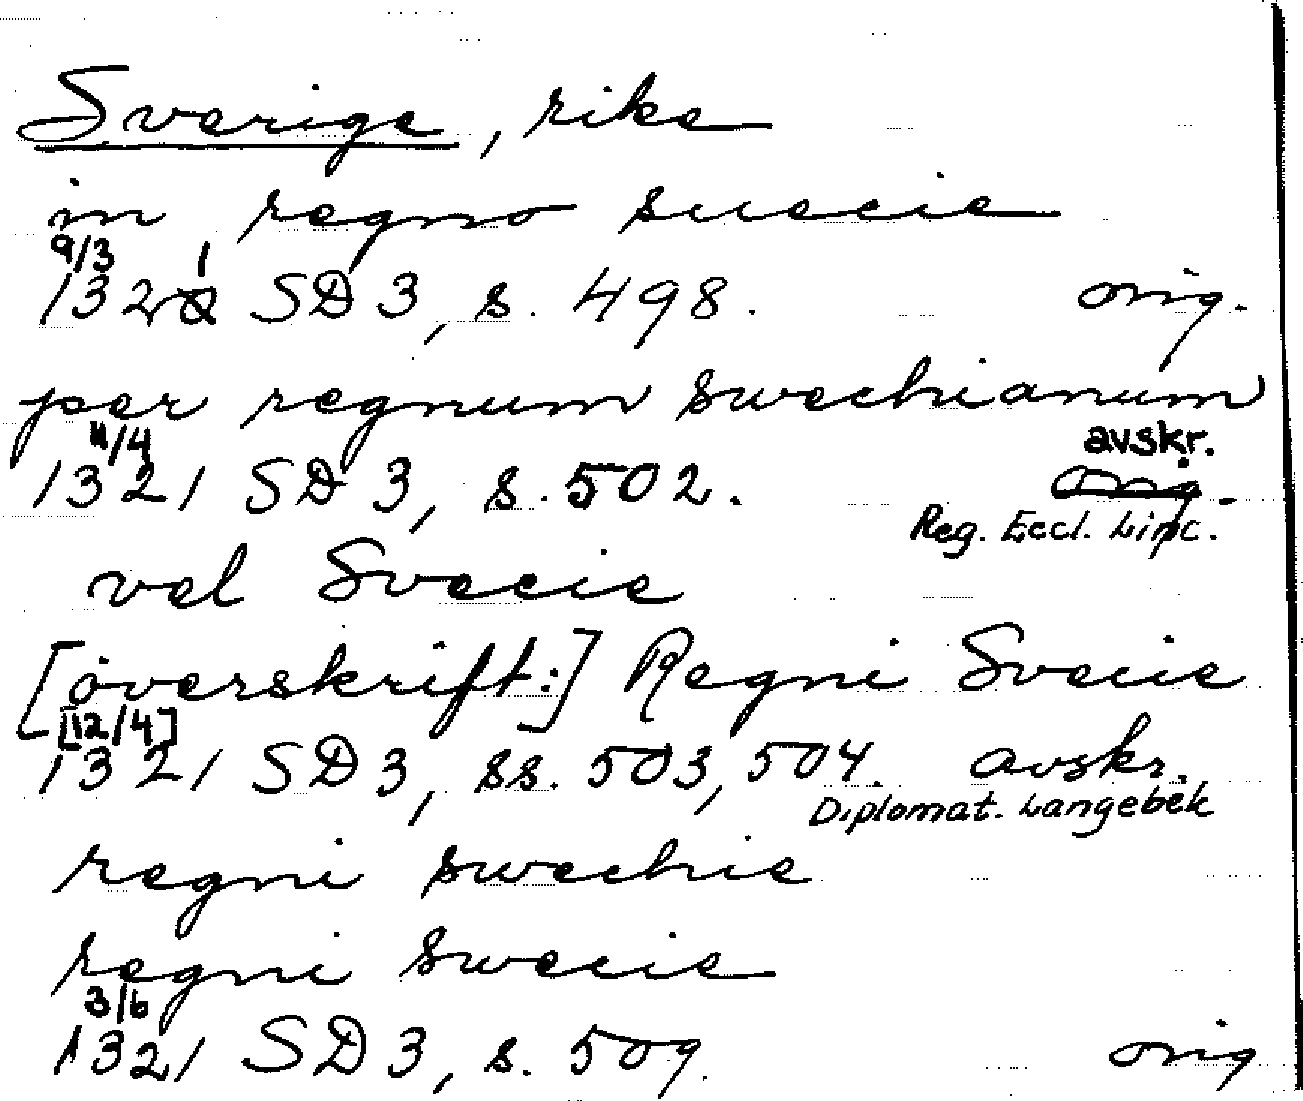 Sverige, rike
in regno suecie
9/3 1
132 SD 3, s. 498. orig.
per regnum swechianum
11/4 avskr.
1321 SD 3, s. 502. orig.
Reg. Eccl. Linc.
vel Svecie
[överskrift:] Regni Svecie
[12/4]
1321 SD 3, ss. 503, 504. avskr.
Diplomat. Langebek
regni swechie
regni swecie
3/6
1321 SD 3, s. 509. orig